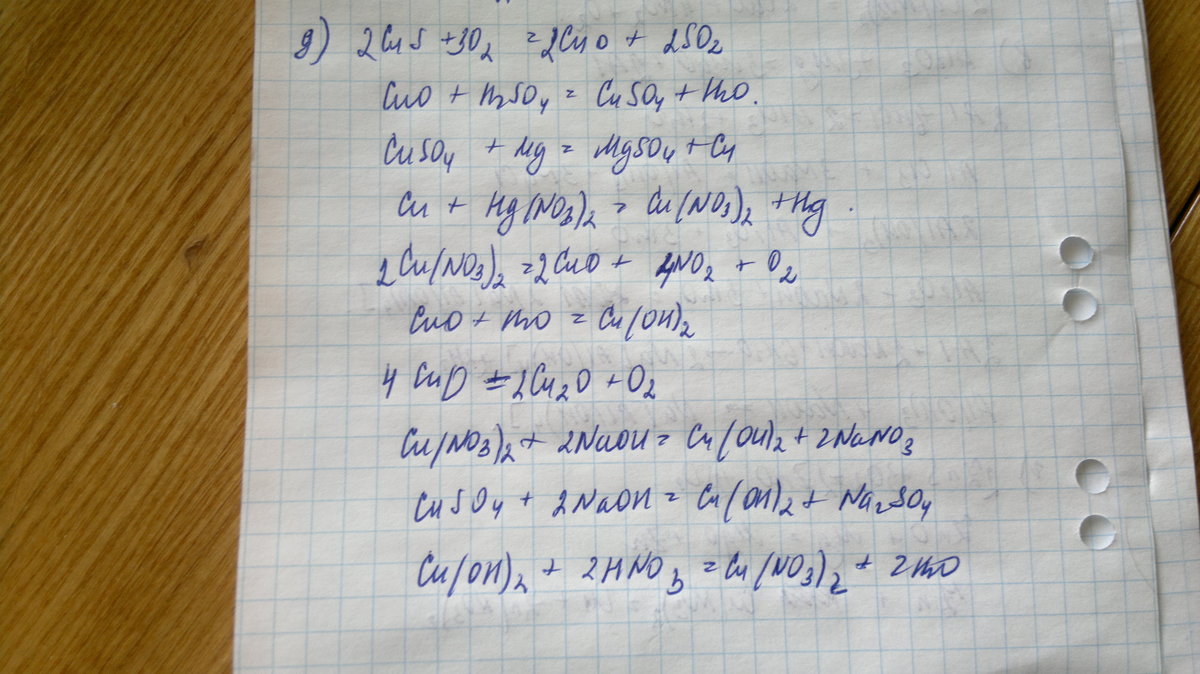 д) 2CuS + 3O2 = 2CuO + 2SO2
CuO + H2SO4 = CuSO4 + H2O.
CuSO4 + Mg = MgSO4 + Cu
Cu + Hg(NO3)2 = Cu(NO3)2 + Hg.
2Cu(NO3)2 = 2CuO + 4NO2 + O2
CuO + H2O = Cu(OH)2
4CuO = 2Cu2O + O2
Cu(NO3)2 + 2NaOH = Cu(OH)2 + 2NaNO3
CuSO4 + 2NaOH = Cu(OH)2 + Na2SO4
Cu(OH)2 + 2HNO3 = Cu(NO3)2 + 2H2O